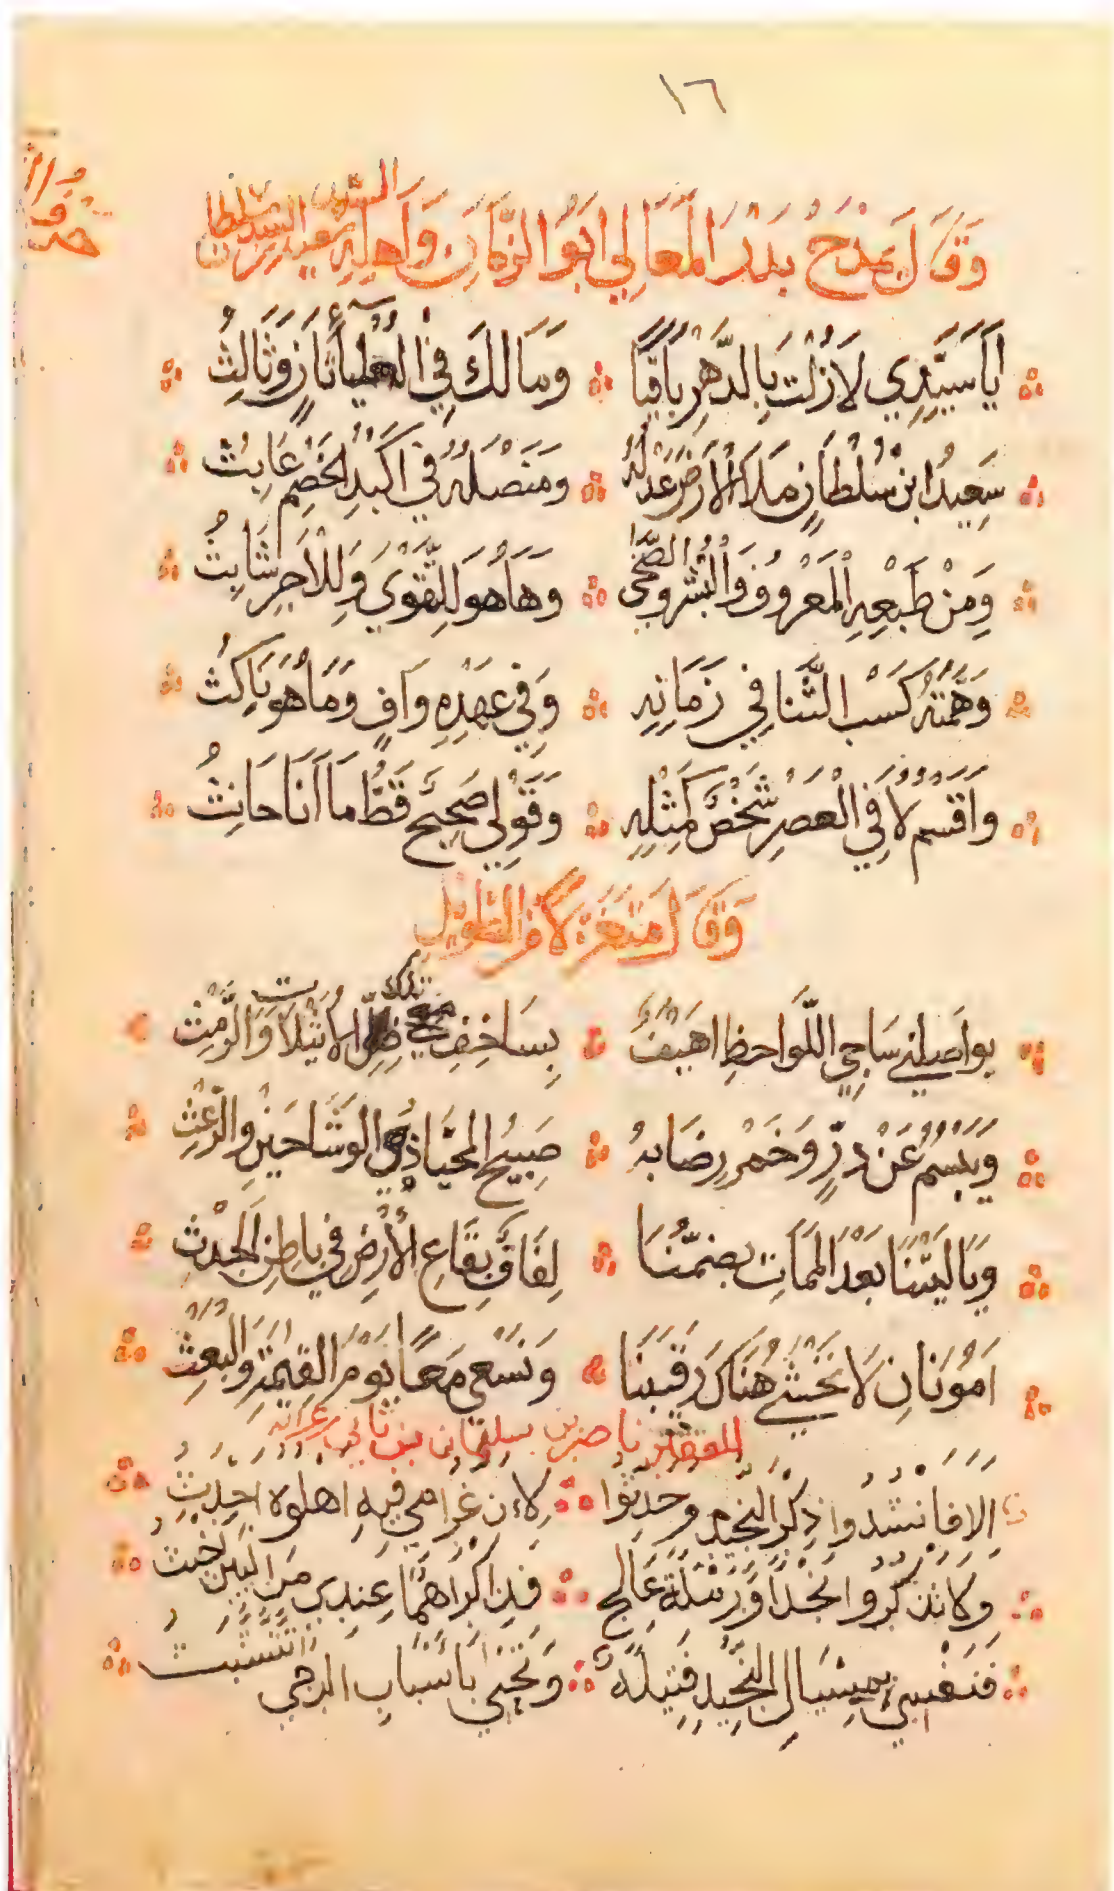 ١٦
وَقَالَ يَمْدَحُ بَدْرَ المَعَالي ابَوُ الزَّمَانِ وَاَهِلِهِ السيد سعيد بن سلطان
اَيَا سَيِّدِي لَا زُلْتَ بِالدَّهْرِ بَاقِيًا وَمَا لَكَ فِي العلياءِ ثَانٍ وَثَالِثُ
سَعِيدُ ابنُ سُلْطَانٍ مَلَا الْأَرْضَ عَدْلَهُ وَمَنْصَلُهُ فِي اَكْبُدِ الْخَصْمِ عَابِثُ
وَمِنْ طَبْعِهِ الْمَعْرُوفُ وَالْبِشْرُ وَالضُّحَى وَهَا هُوَ لِلتَّقْوَى وَلِلْاَجْرِ شَابِثُ
وَهَمَّتُهُ كَسْبُ الثَّنَا فِي زَمَانِهِ وَفِي عَهْدِهِ وَافٍ وَمَا هُوَ نَاكِثُ
وَاقْسَمُ لَا فِي الْعَصْرِ شَخْصٌ كَمِثْلِهِ وَقَوْلِي صَحِيحٌ قَطُّ مَا اَنَا حَانِثُ
وَقَالَ مُتَغَزِّلًا مِنَ الطَّوِيل
يواصلني سَاجِي اللَّوَاحِظِ اهْيَفُ بِسَاخِفِ ظِلِّ الأثلات وَالرَّمْثِ
وَيَبْسُمُ عَنْ دُرٍّ وَخَمْرٍ رِضَابُهُ صَبِيحُ المُحَيَّا ذُي الوَشَاحَيْنِ وَالرَّعْثِ
وَيَا لَيْتَنَا بَعْدَ المَمَاتِ يضمُّنَا لِفَاقَ بِقَاعِ الأَرْضِ فِي بَاطِنِ الجَدْثِ
اَمَوْنَانِ لَا نَخْشَى هُنَاكَ رَقِيبَنَا وَنَسْعَى مَعًا يَوْمَ القِيمَةِ وَالْبَعْثِ
ناصر بن سليمان بن ثاني
الا فَانْشُدُوا ذِكْرَ النُّجَيْدِ وَحَدِّثُوا لِاءن غرامي فيه اهلوه احدثُ
ولا تذكروا نجْدًا وَرَمْلَةَ عَالِج فذاكراهما عندي من البين اخبثُ
فنفسي بميشال النُّجَيْدِ قتيلة ونجني بأسباب الرجي اتشبثُ